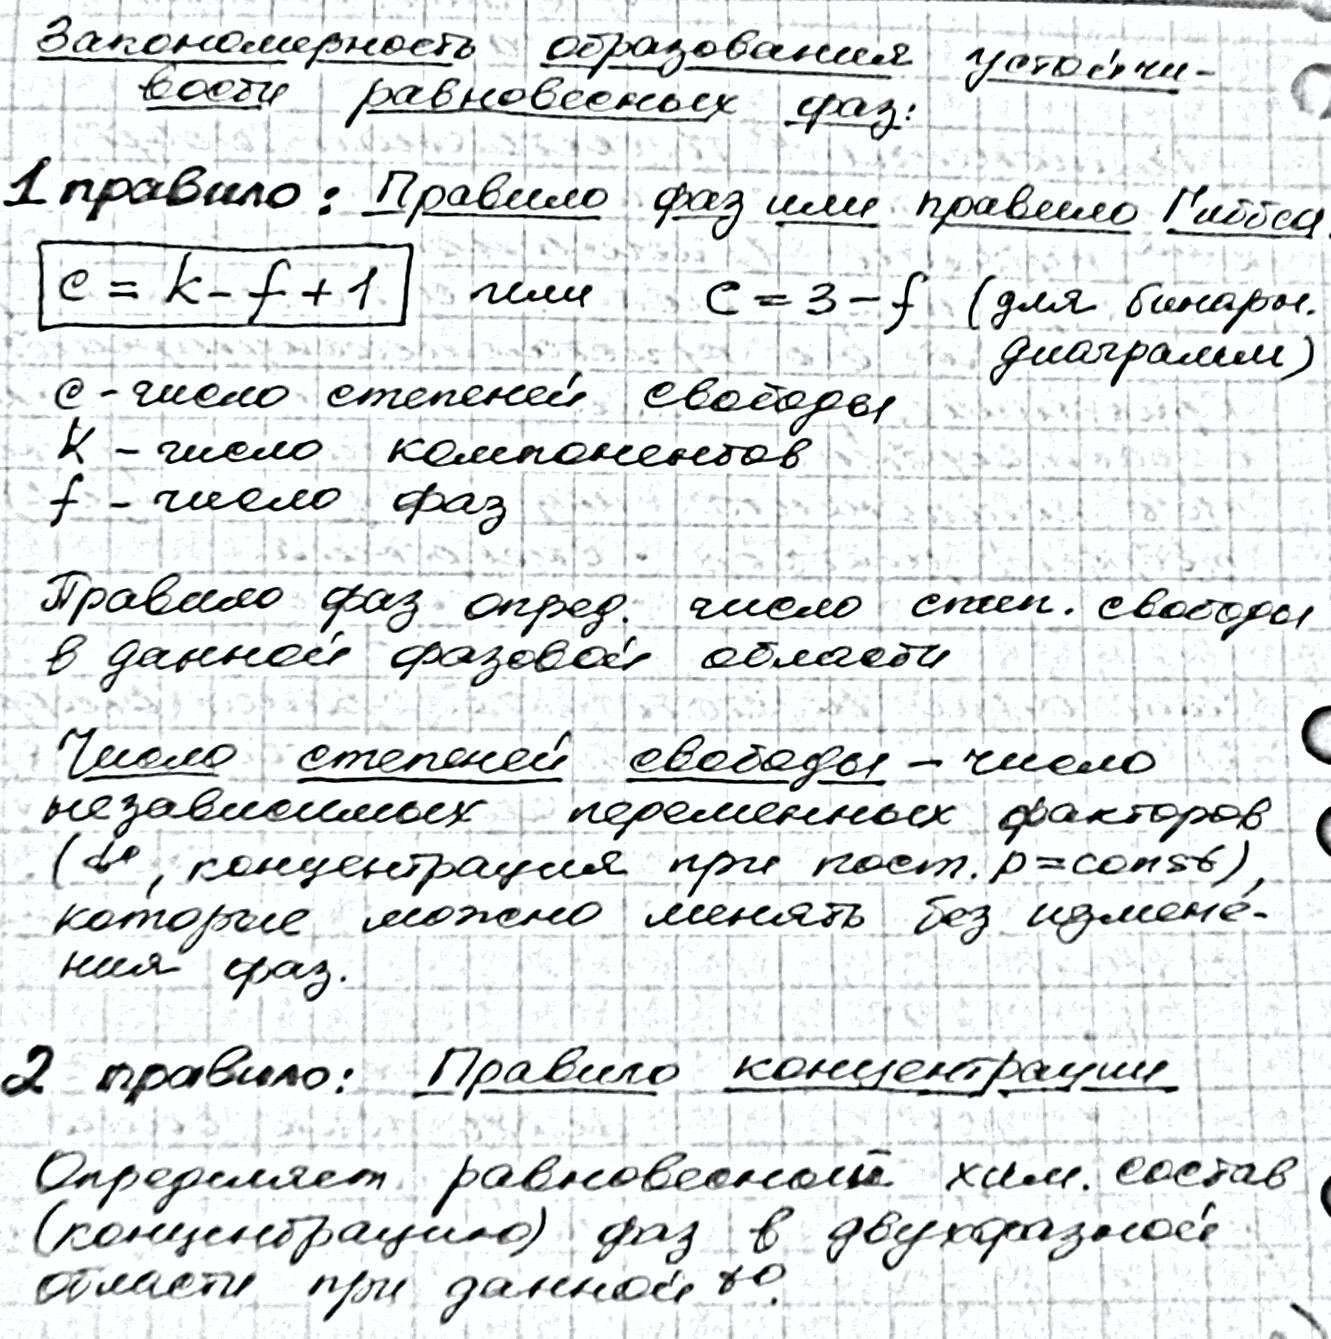 Закономерность образования устойчи-
вости равновесных фаз:
1 правило: Правило фаз или правило Гиббса.
c = k - f + 1 или c = 3 - f (для бинарн.
диаграмм)
c - число степеней свободы
k - число компонентов
f - число фаз
Правило фаз опред. число степ. свободы
в данной фазовой области
Число степеней свободы - число
независимых переменных факторов
(t°, концентрация при пост. p=const),
которые можно менять без измене-
ния фаз.
2 правило: Правило концентрации
Определяет равновесный хим. состав
(концентрацию) фаз в двухфазной
области при данной t°.